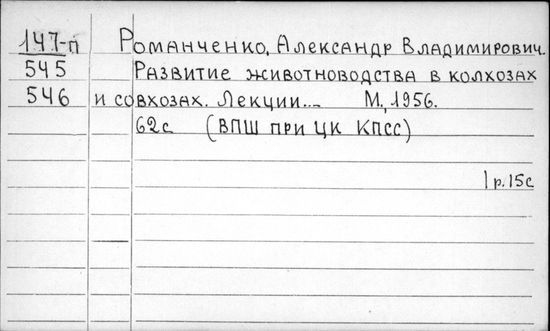 147-п Романченко, Александр Владимирович.
545 Развитие животноводства в колхозах
546 и совхозах. Лекции... М., 1956.
62с (ВПШ при ЦК КПСС)
1р.15с